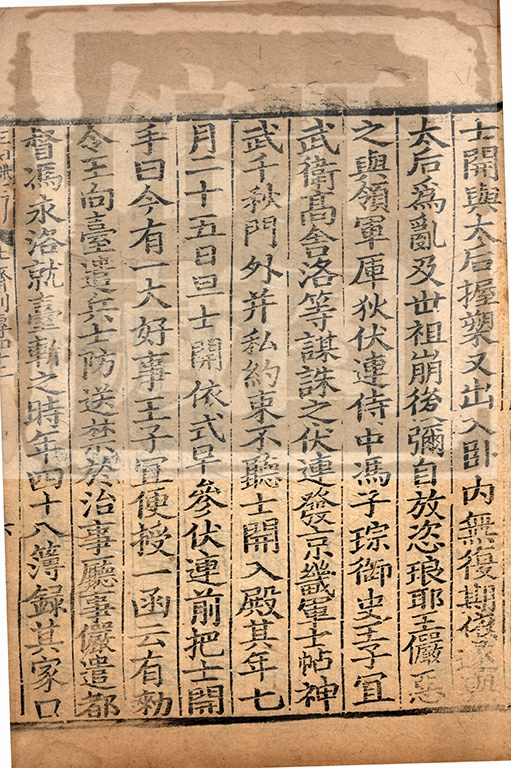 士開與太后握槊又出入卧内無復期度遂與
太后爲亂及丗祖崩後彌自放恣琅耶王儼惡
之與領軍厙狄伏連侍中馮子琮御史王子宜
武衛髙舍洛等謀誅之伏連發京畿軍士帖神
武千秋門外并私約束不聽士開入殿其年七
月二十五日旦士開依式早參伏連前把士開
手曰今有一大好事王子宜便授一函云有勑
令王向臺遣兵士防送禁於治事廳事儼遣都
督馮永洛就臺斬之時年四十八簿録其家口